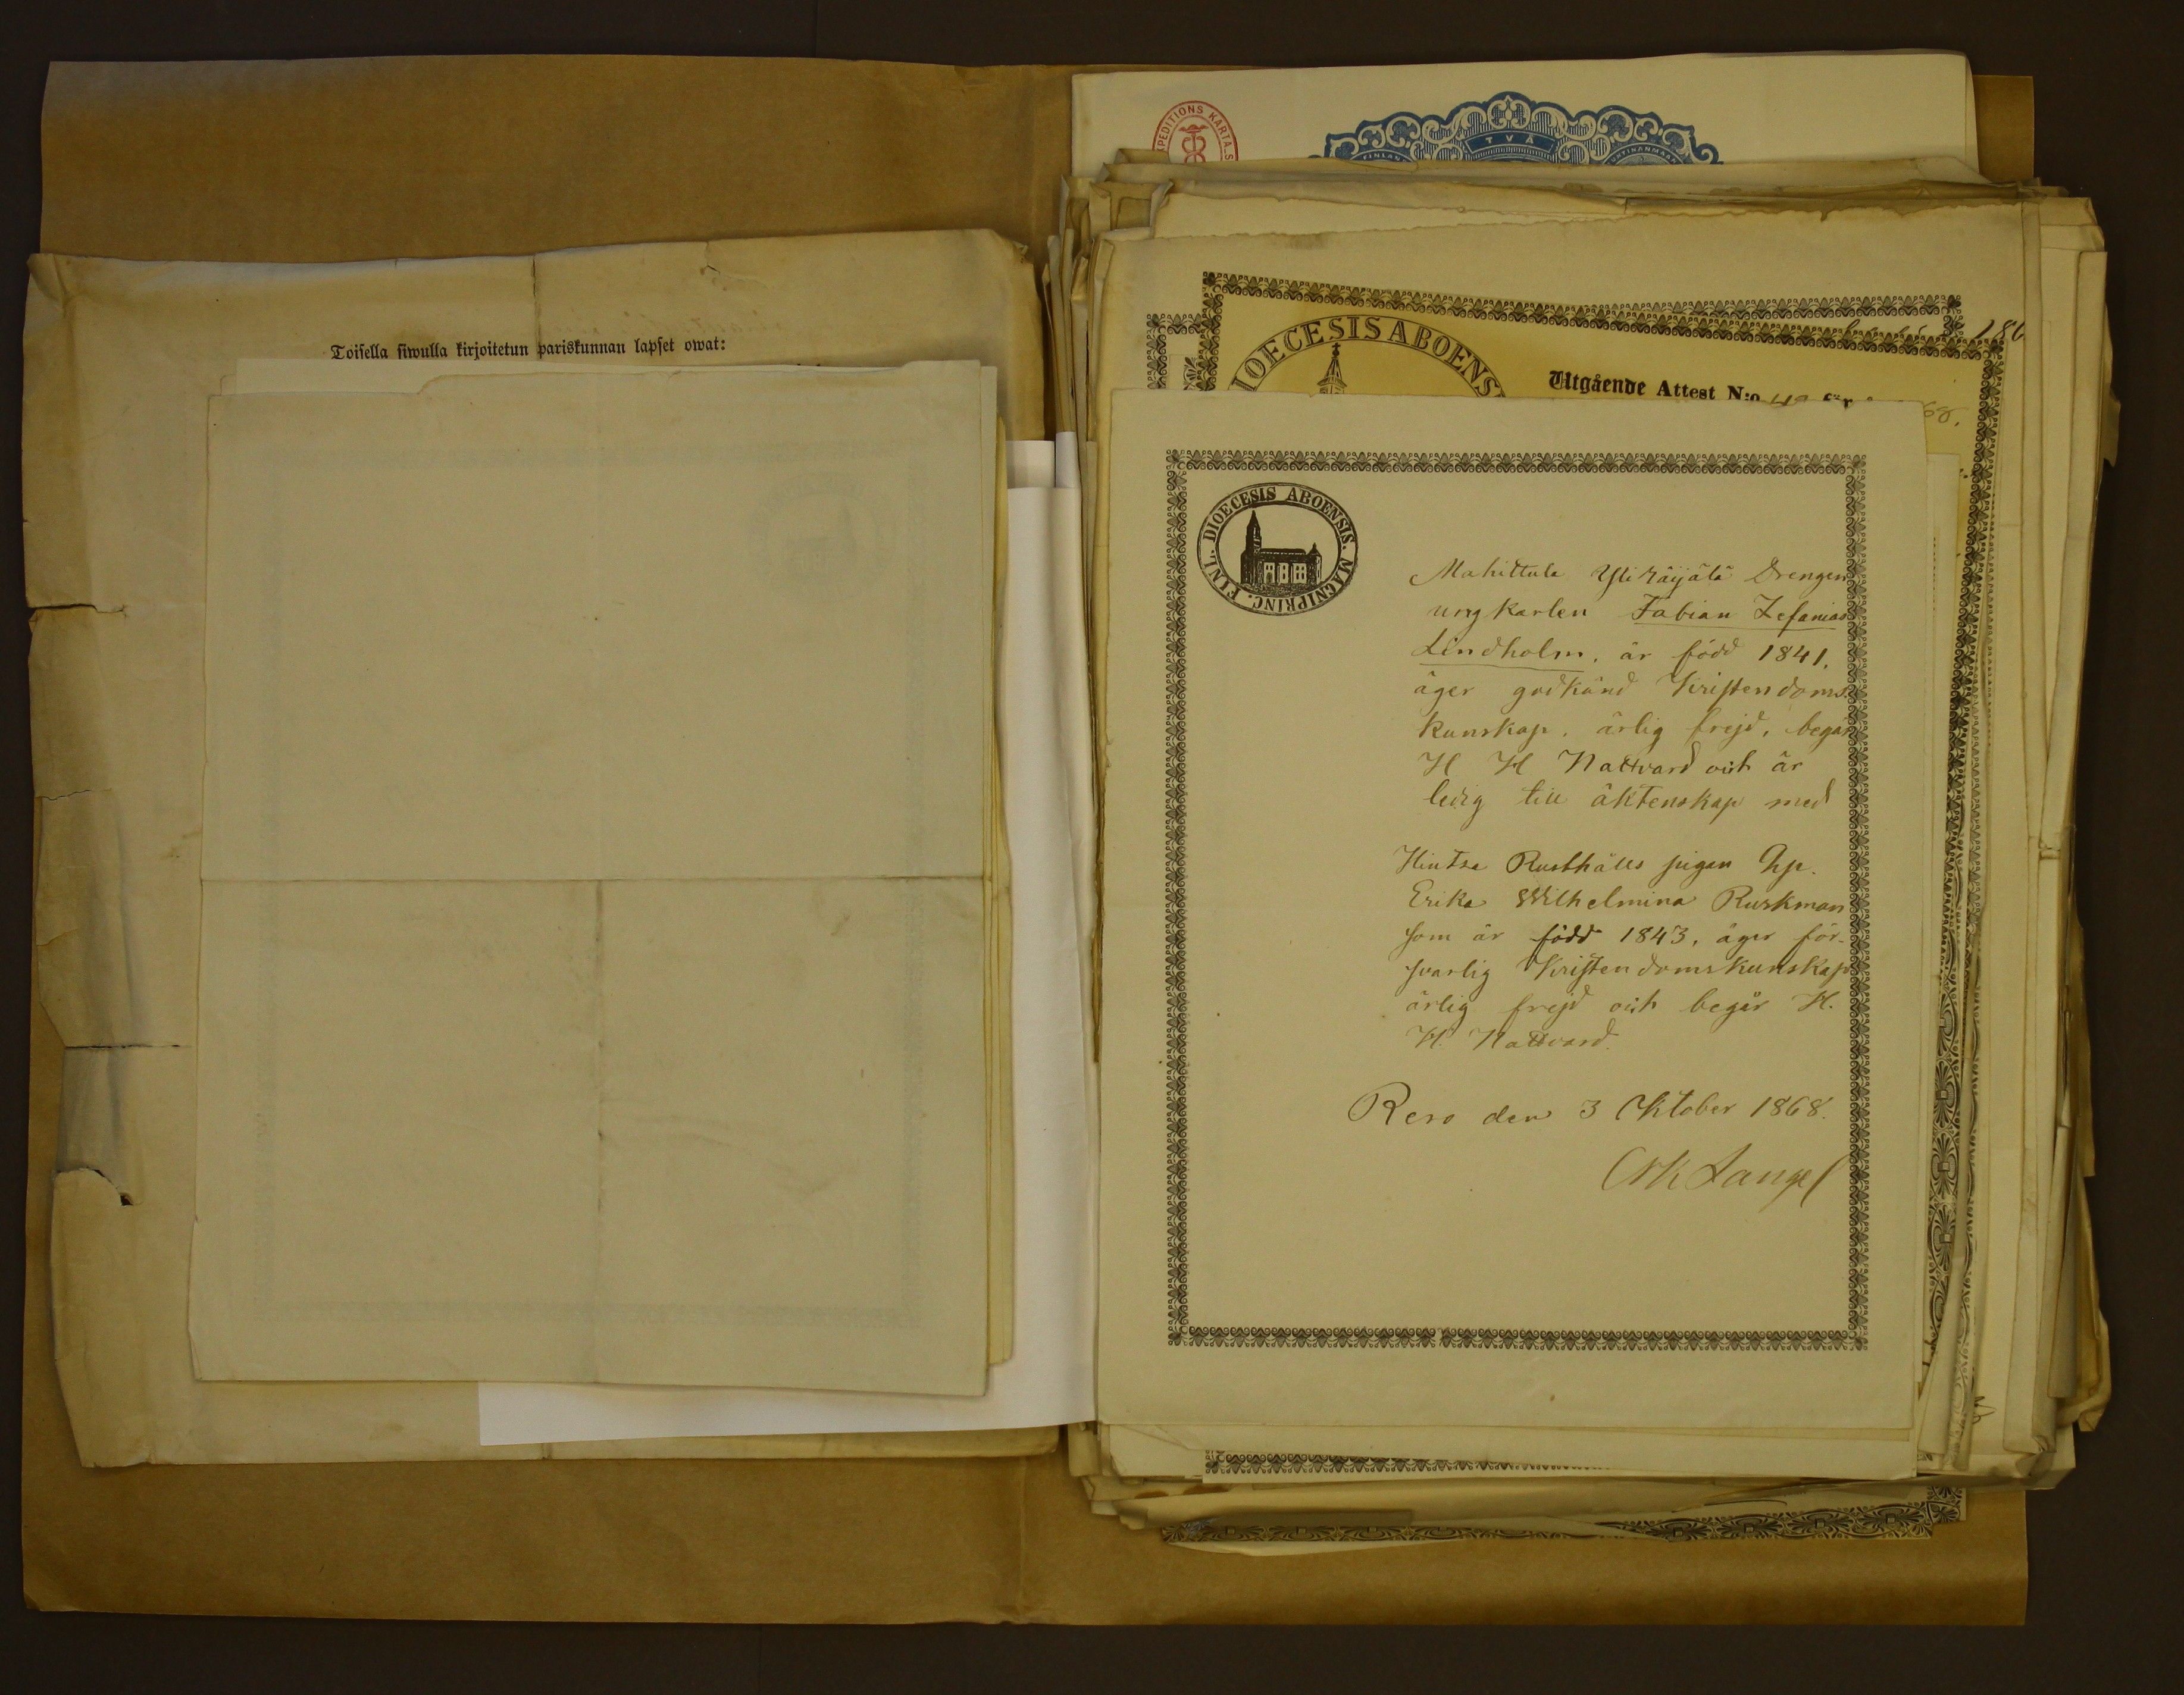 PEDITIONS KARTA.S
TVÅ
FINLAN
Toisella siwulla kirjoitetun pariskunnan lapset owat:
186
IOECESIS ABOENS
Utgående Attest N:o
för
68.
FINL. DIOECESIS ABOENSIS. MAGNIPRINC.
Mahittula Yli Räijälä Drengen
ungkarlen Fabian Zefanias
Lindholm, är född 1841,
äger godkänd Kristendoms
kunskap, ärlig frejd, begår
H H Nattvard och är
ledig till äktenskap med
Hintsa Rusthålls pigan
Erika Wilhelmina Ruskman
som är född 1843, äger för-
svarlig Kristendomskunskap
ärlig frejd och begår H.
H. Nattvard.
Reso den 3 Oktober 1868.